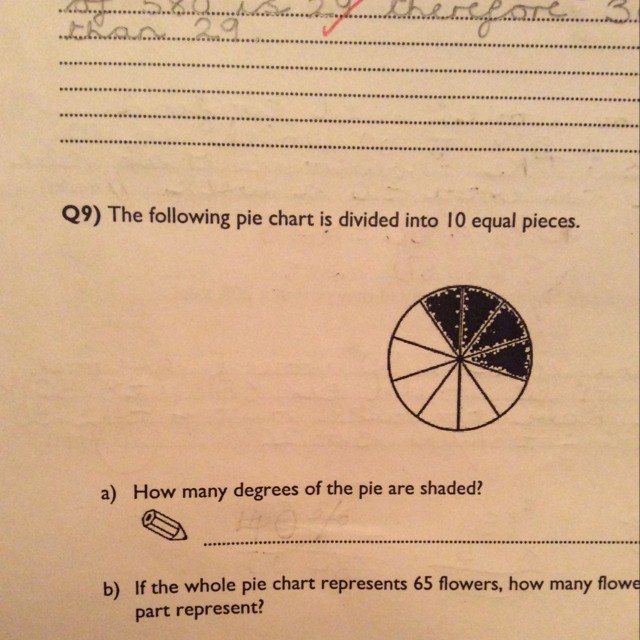 of 580 is 29 therefore 3
than 29
Q9) The following pie chart is divided into 10 equal pieces.
a) How many degrees of the pie are shaded?
40%
b) If the whole pie chart represents 65 flowers, how many flowe
part represent?